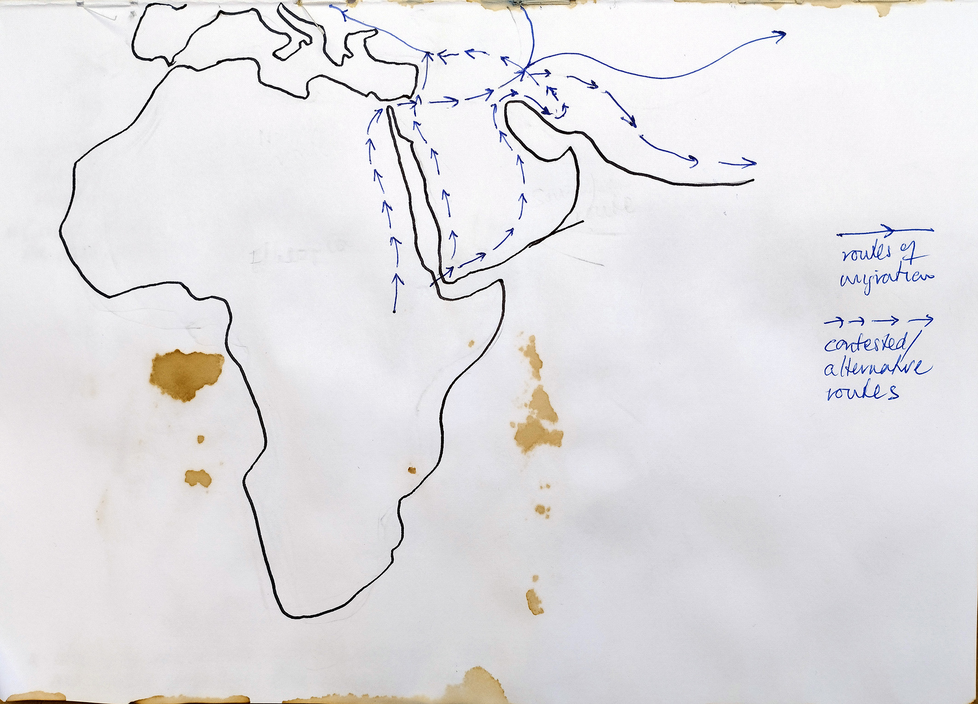 routes of
migration
contested/
alternative
routes